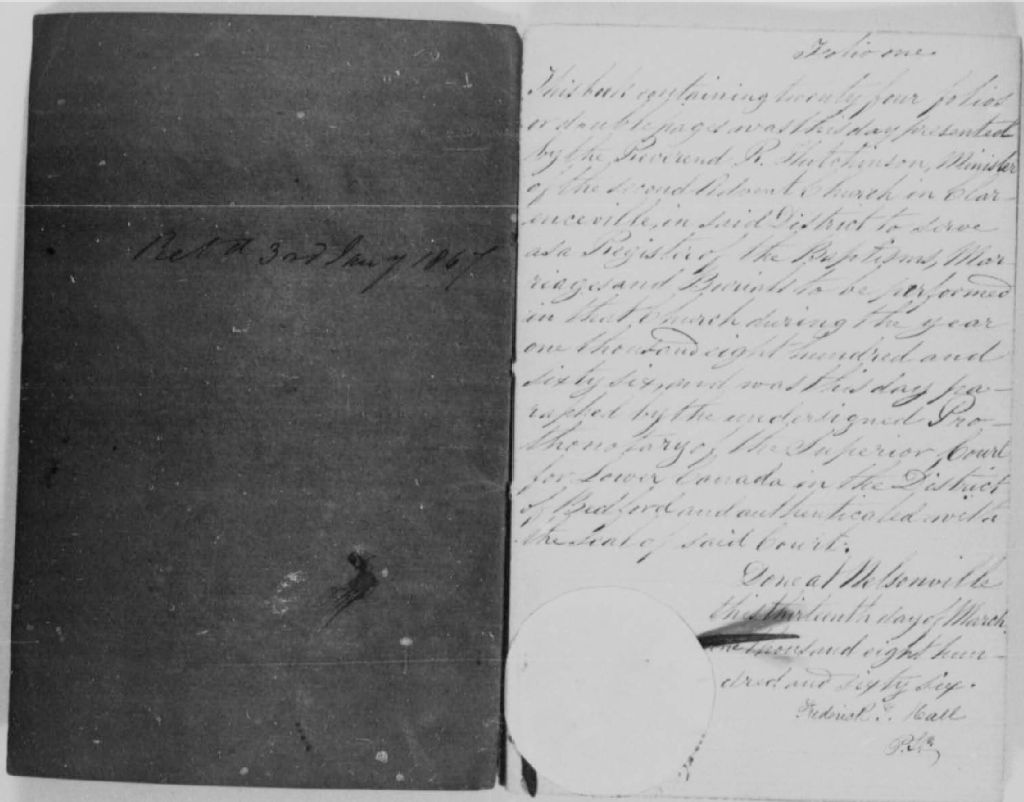 Ret d 3rd Jany 1867
Folio one.
This book containing twenty four folios
or double pages was this day presented
by the Reverend R. Hutchinson, Minister
of the second Advent Church in Clar-
enceville, in said District to serve
as a Register of the Baptisms, Mar-
riages and Burials to be performed
in that Church during the year
one thousand eight hundred and
sixty six, and was this day pa-
raphed by the undersigned Pro-
thonotary of the Superior Court
for Lower Canada in the District
of Bedford and authenticated with
the Seal of said Court.
Done at Nelsonville
this thirteenth day of March
one thousand eight hun-
dred and sixty six.
Frederick T. Hall